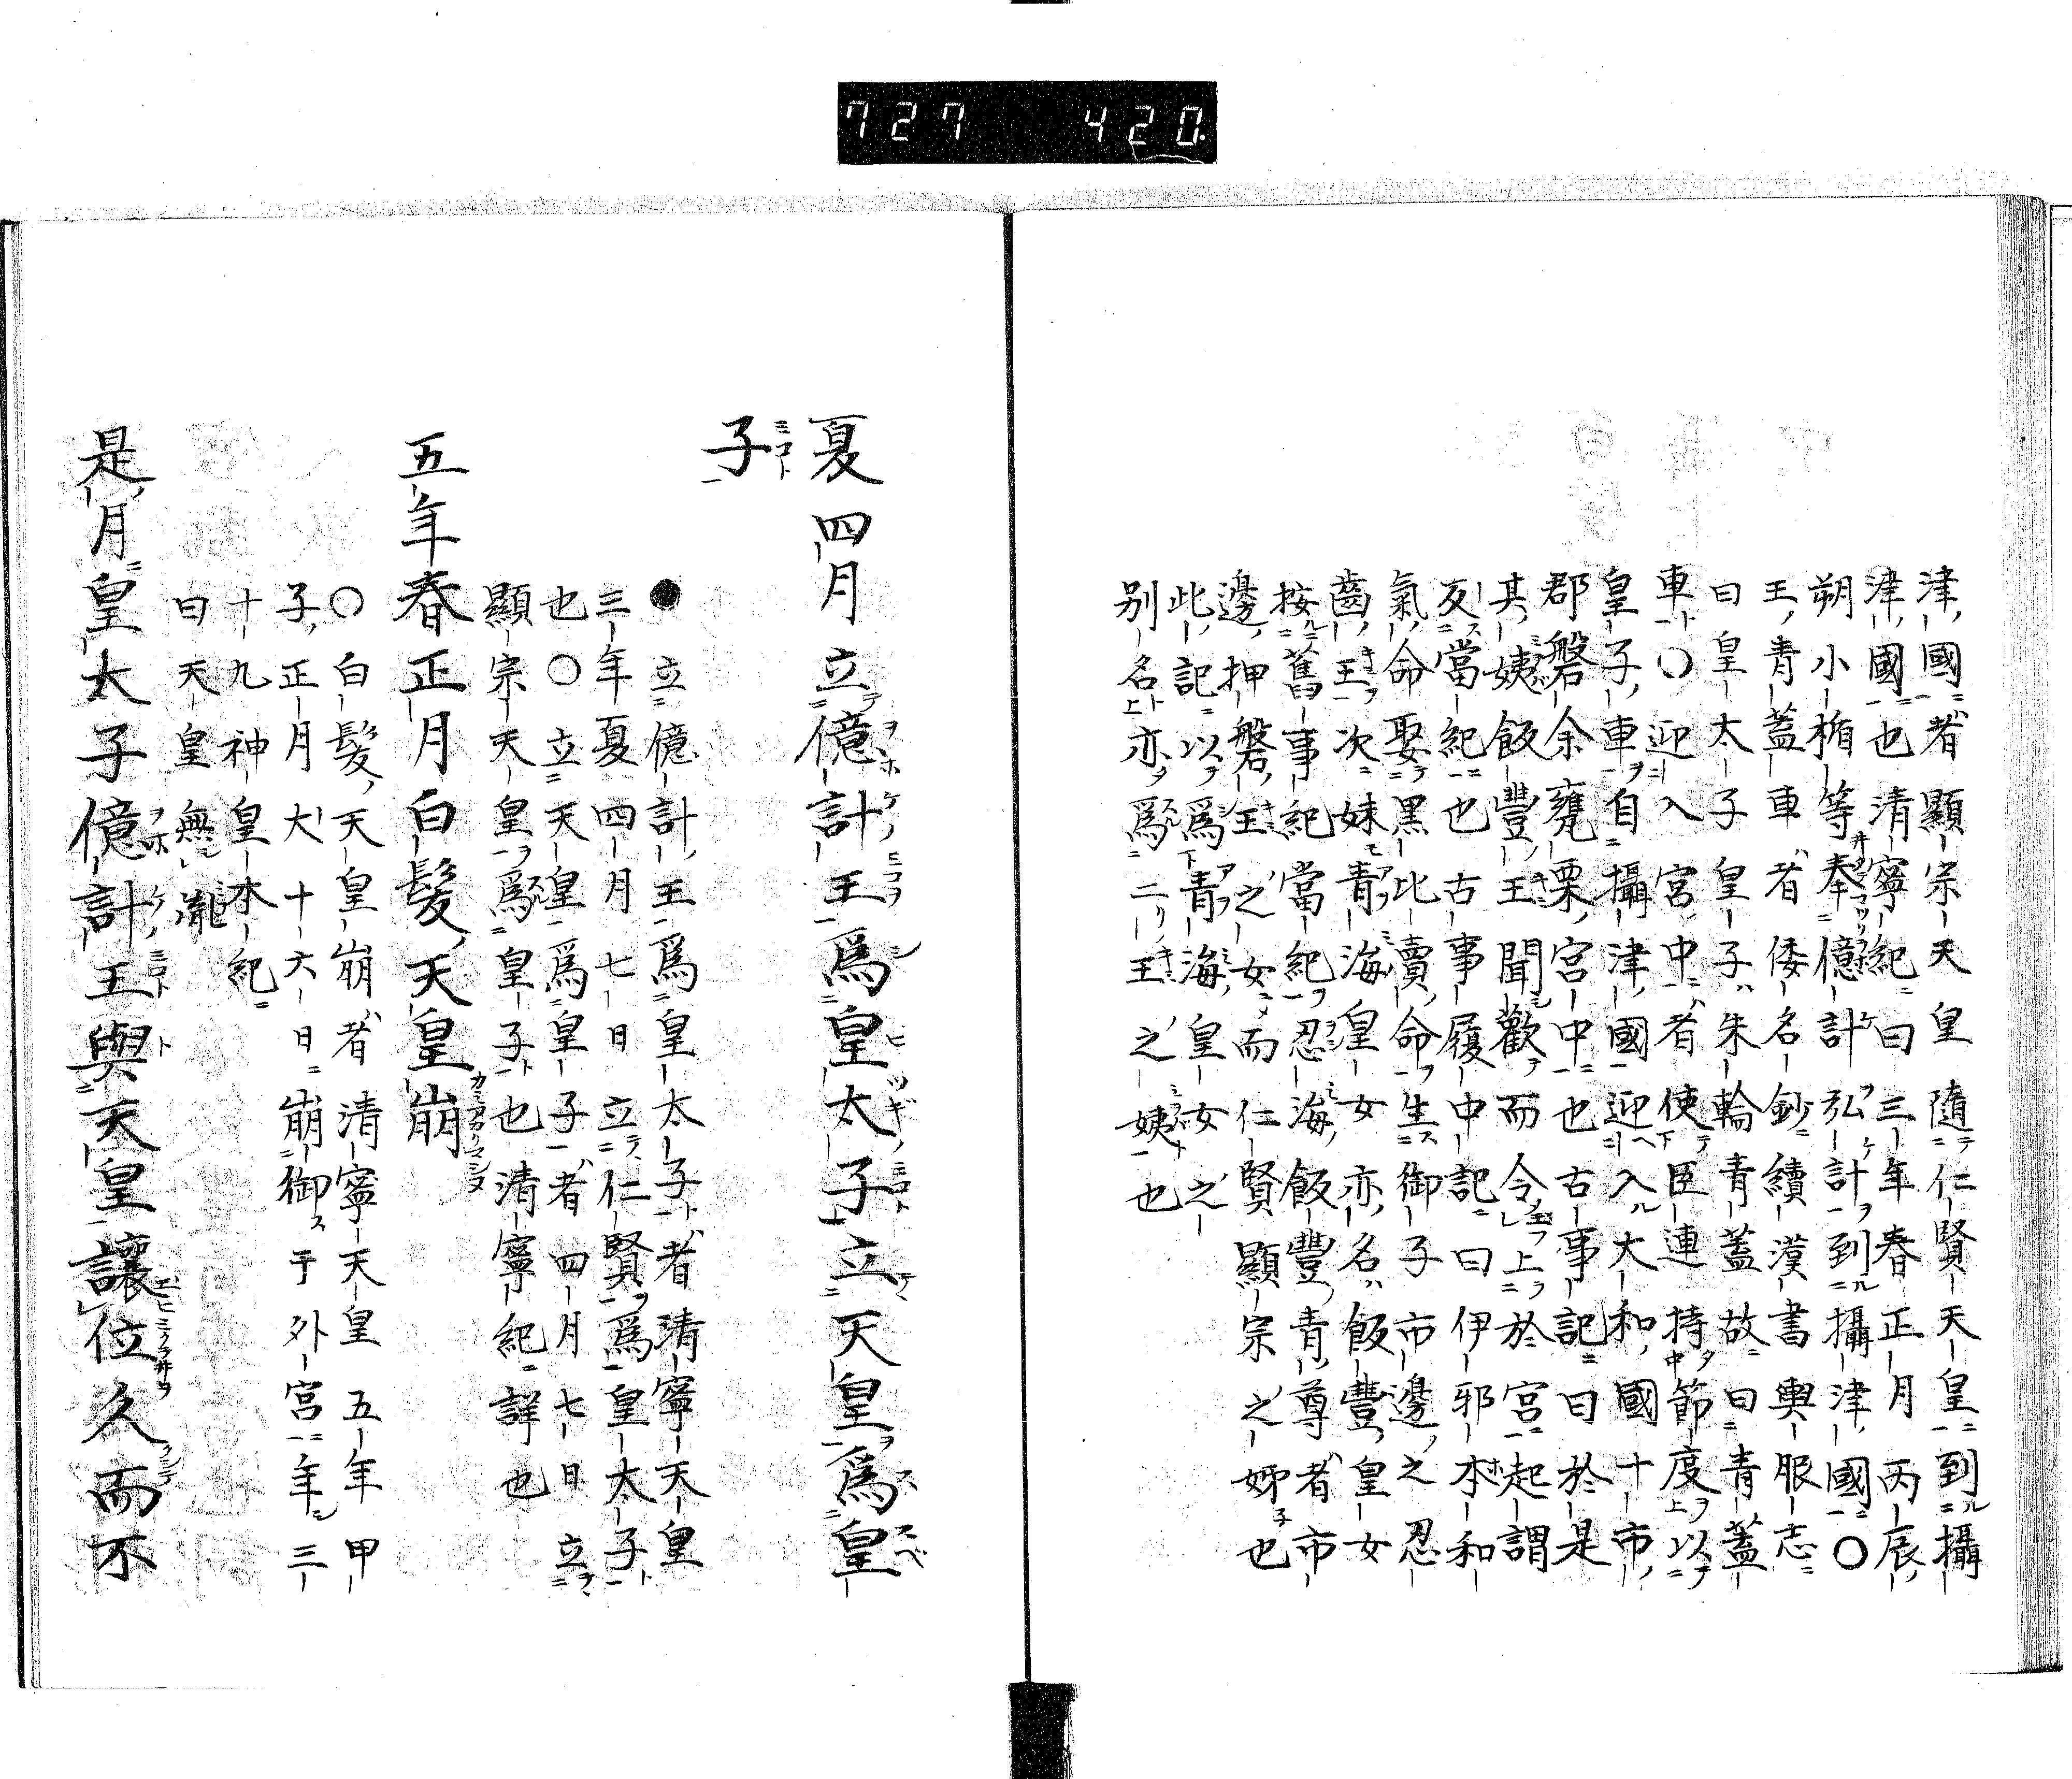 727 420
津國者顯宗天皇隨仁賢天皇到攝
津國也清寧紀曰三年春正月丙辰
朔小楯等奉億計弘計到攝津國〇
王青蓋車者倭名鈔續漢書輿服志
曰皇太子皇子朱輪青蓋故曰青蓋
車〇迎入宮中者使臣連持節度以
皇子車自攝津國迎入大和國十市
郡磐余甕栗宮中也古事記曰於是
其姨飯豐王聞歡而令上於宮起謂
反當紀也古事履中記曰伊邪本和
氣命娶黑比賣命生御子市邊之忍
齒王次妹青海皇女亦名飯豐皇女
按舊事紀當紀忍海飯豐青尊者市
邊押磐王之女而仁賢顯宗之姊也
此記以爲青海皇女之
别名亦爲二王之姨也
夏四月立億計王爲皇太子立天皇爲皇
子
●立億計王爲皇太子者清寧天皇
三年夏四月七日立仁賢爲皇太子
也〇立天皇爲皇子者四月七日立
顯宗天皇爲皇子也清寧紀詳也
五年春正月白髮天皇崩
〇白髮天皇崩者清寧天皇五年甲
子正月大十六日崩御于外宮年三
十九神皇本紀
曰天皇無胤
是月皇太子億計王與天皇讓位久而不